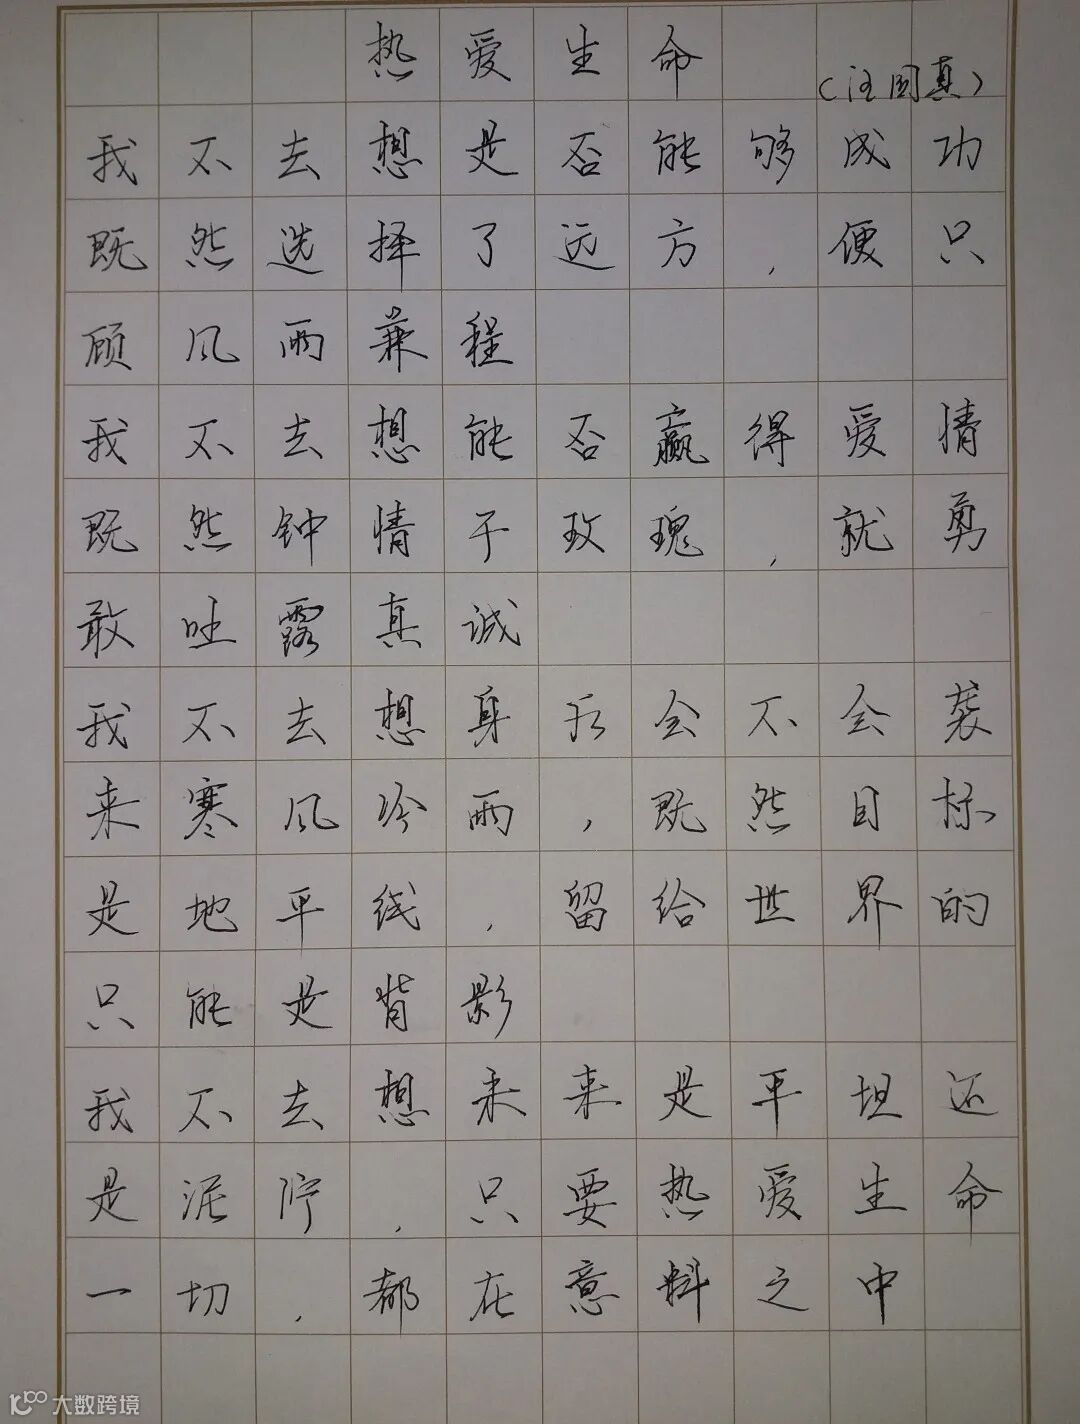 热爱生命
(汪国真)
我不去想是否能够成功
既然选择了远方,便只
顾风雨兼程
我不去想能否赢得爱情
既然钟情于玫瑰,就勇
敢吐露真诚
我不去想身后会不会袭
来寒风冷雨,既然目标
是地平线,留给世界的
只能是背影
我不去想未来是平坦还
是泥泞,只要热爱生命
一切,都在意料之中
大数跨境